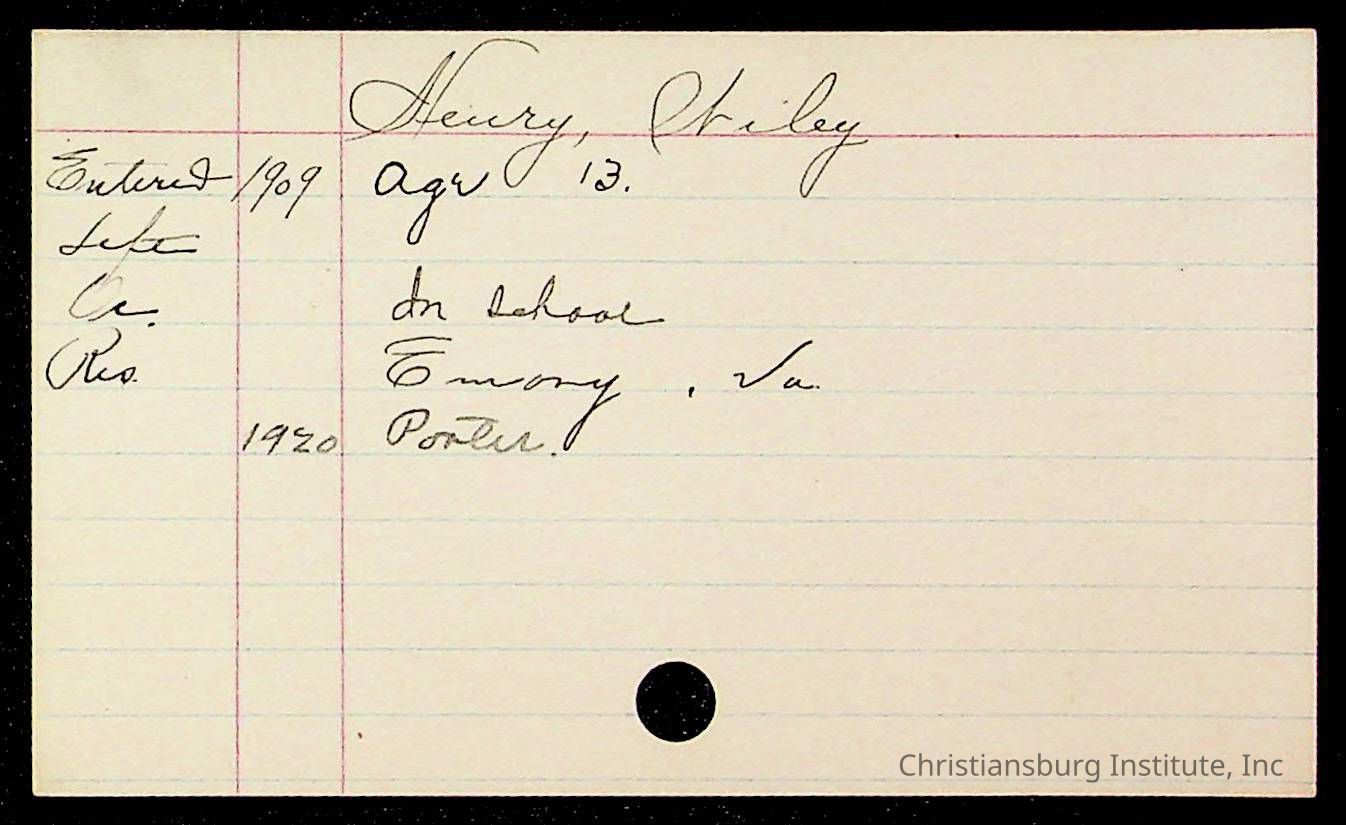 Henry, Wiley
Entered 1909 Age 13.
Left
Oc. In school
Res. Emory, Va.
1920 Porter.
Christiansburg Institute, Inc